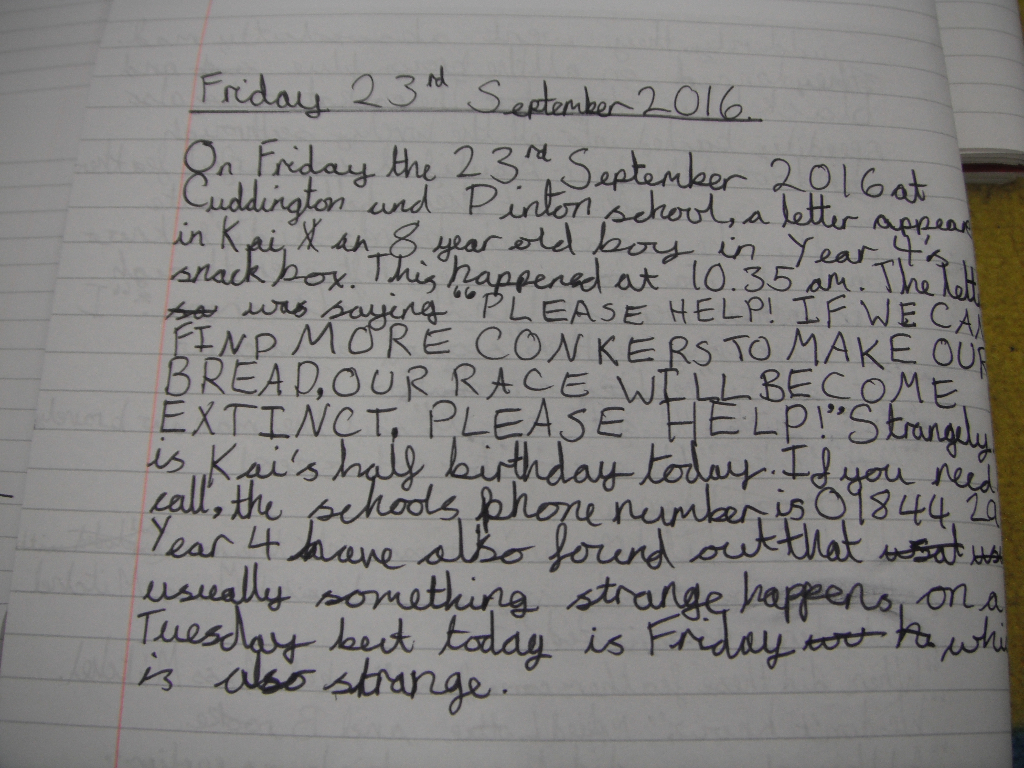 Friday 23rd September 2016.
On Friday the 23rd September 2016 at
Cuddington and Dinton school, a letter appear
in Kai, an 8 year old boy in Year 4's
snack box. This happened at 10.35 am. The lett
so was saying “PLEASE HELP! IF WE CAN
FIND MORE CONKERS TO MAKE OUR
BREAD, OUR RACE WILL BECOME
EXTINCT. PLEASE HELP!” Strangely
is Kai's half birthday today. If you need
call, the schools phone number is 01844 29
Year 4 have also found out that
usually something strange happens, on a
Tuesday but today is Friday whi
is also strange.